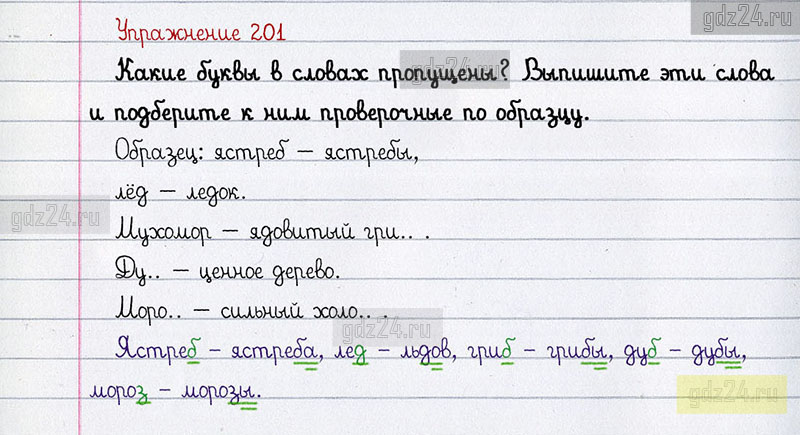 gdz24.ru
Упражнение 201
Какие буквы в словах пропущены? Выпишите эти слова
gdz24.ru
и подберите к ним проверочные по образцу.
Образец: ястреб – ястребы,
лёд – ледок.
gdz24.ru
Мухомор – ядовитый гри.. .
Ду.. – ценное дерево.
Моро.. – сильный холо.. .
gdz24.ru
Ястреб – ястреба, лед – льдов, гриб – грибы, дуб – дубы,
мороз – морозы.
gdz24.ru